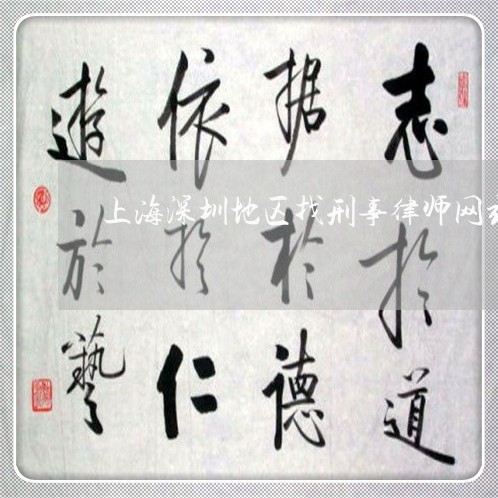 志於道
据於德
依於仁
遊於藝
上海深圳地区找刑事律师网